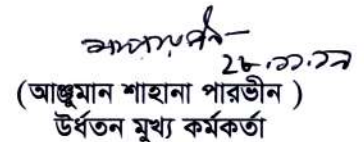 ২৮.১১.১৯
(আঞ্জুমান শাহানা পারভীন )
উর্ধতন মুখ্য কর্মকর্তা